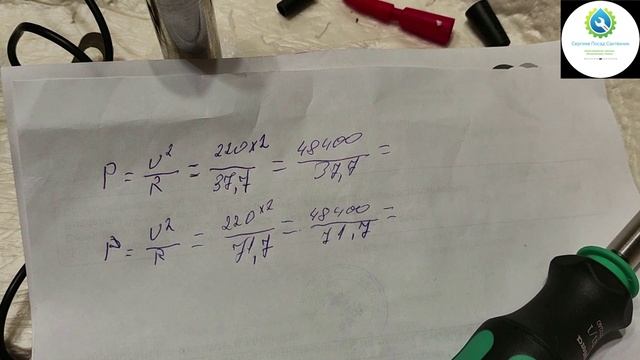 Сергиев Посад Сантехник
P = U²/R = 220×2/37,7 = 48400/37,7 =
P = U²/R = 220×2/71,7 = 48400/71,7 =